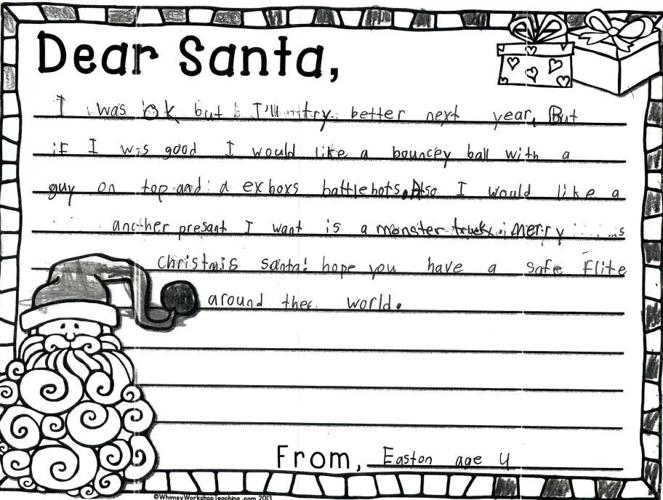 Dear Santa,
I was ok but I'll try better next year, But
if I was good I would like a bouncey ball with a
guy on top and a exboxs battlebots. Also I would like a
another presant I want is a monster truck merry
christmis santa! hope you have a safe flite
around thee world.
From, Easton age 4
©WhimsyWorkshopTeaching.com 2013